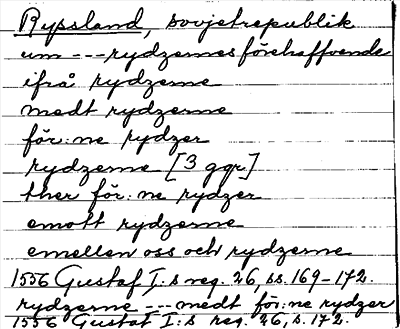 Ryssland, sovjetrepublik
um --- rydzernes förehaffvende
ifrå rydzerne
medt rydzerne
för:ne rydzer
rydzerne [3 ggr]
ther för:ne rydzer
emott rydzerne
emellen oss och rydzerne
1556 Gustaf I:s reg. 26, ss. 169-172.
rydzerne --- medt för:ne rydzer
1556 Gustaf I:s reg. 26, s. 172.